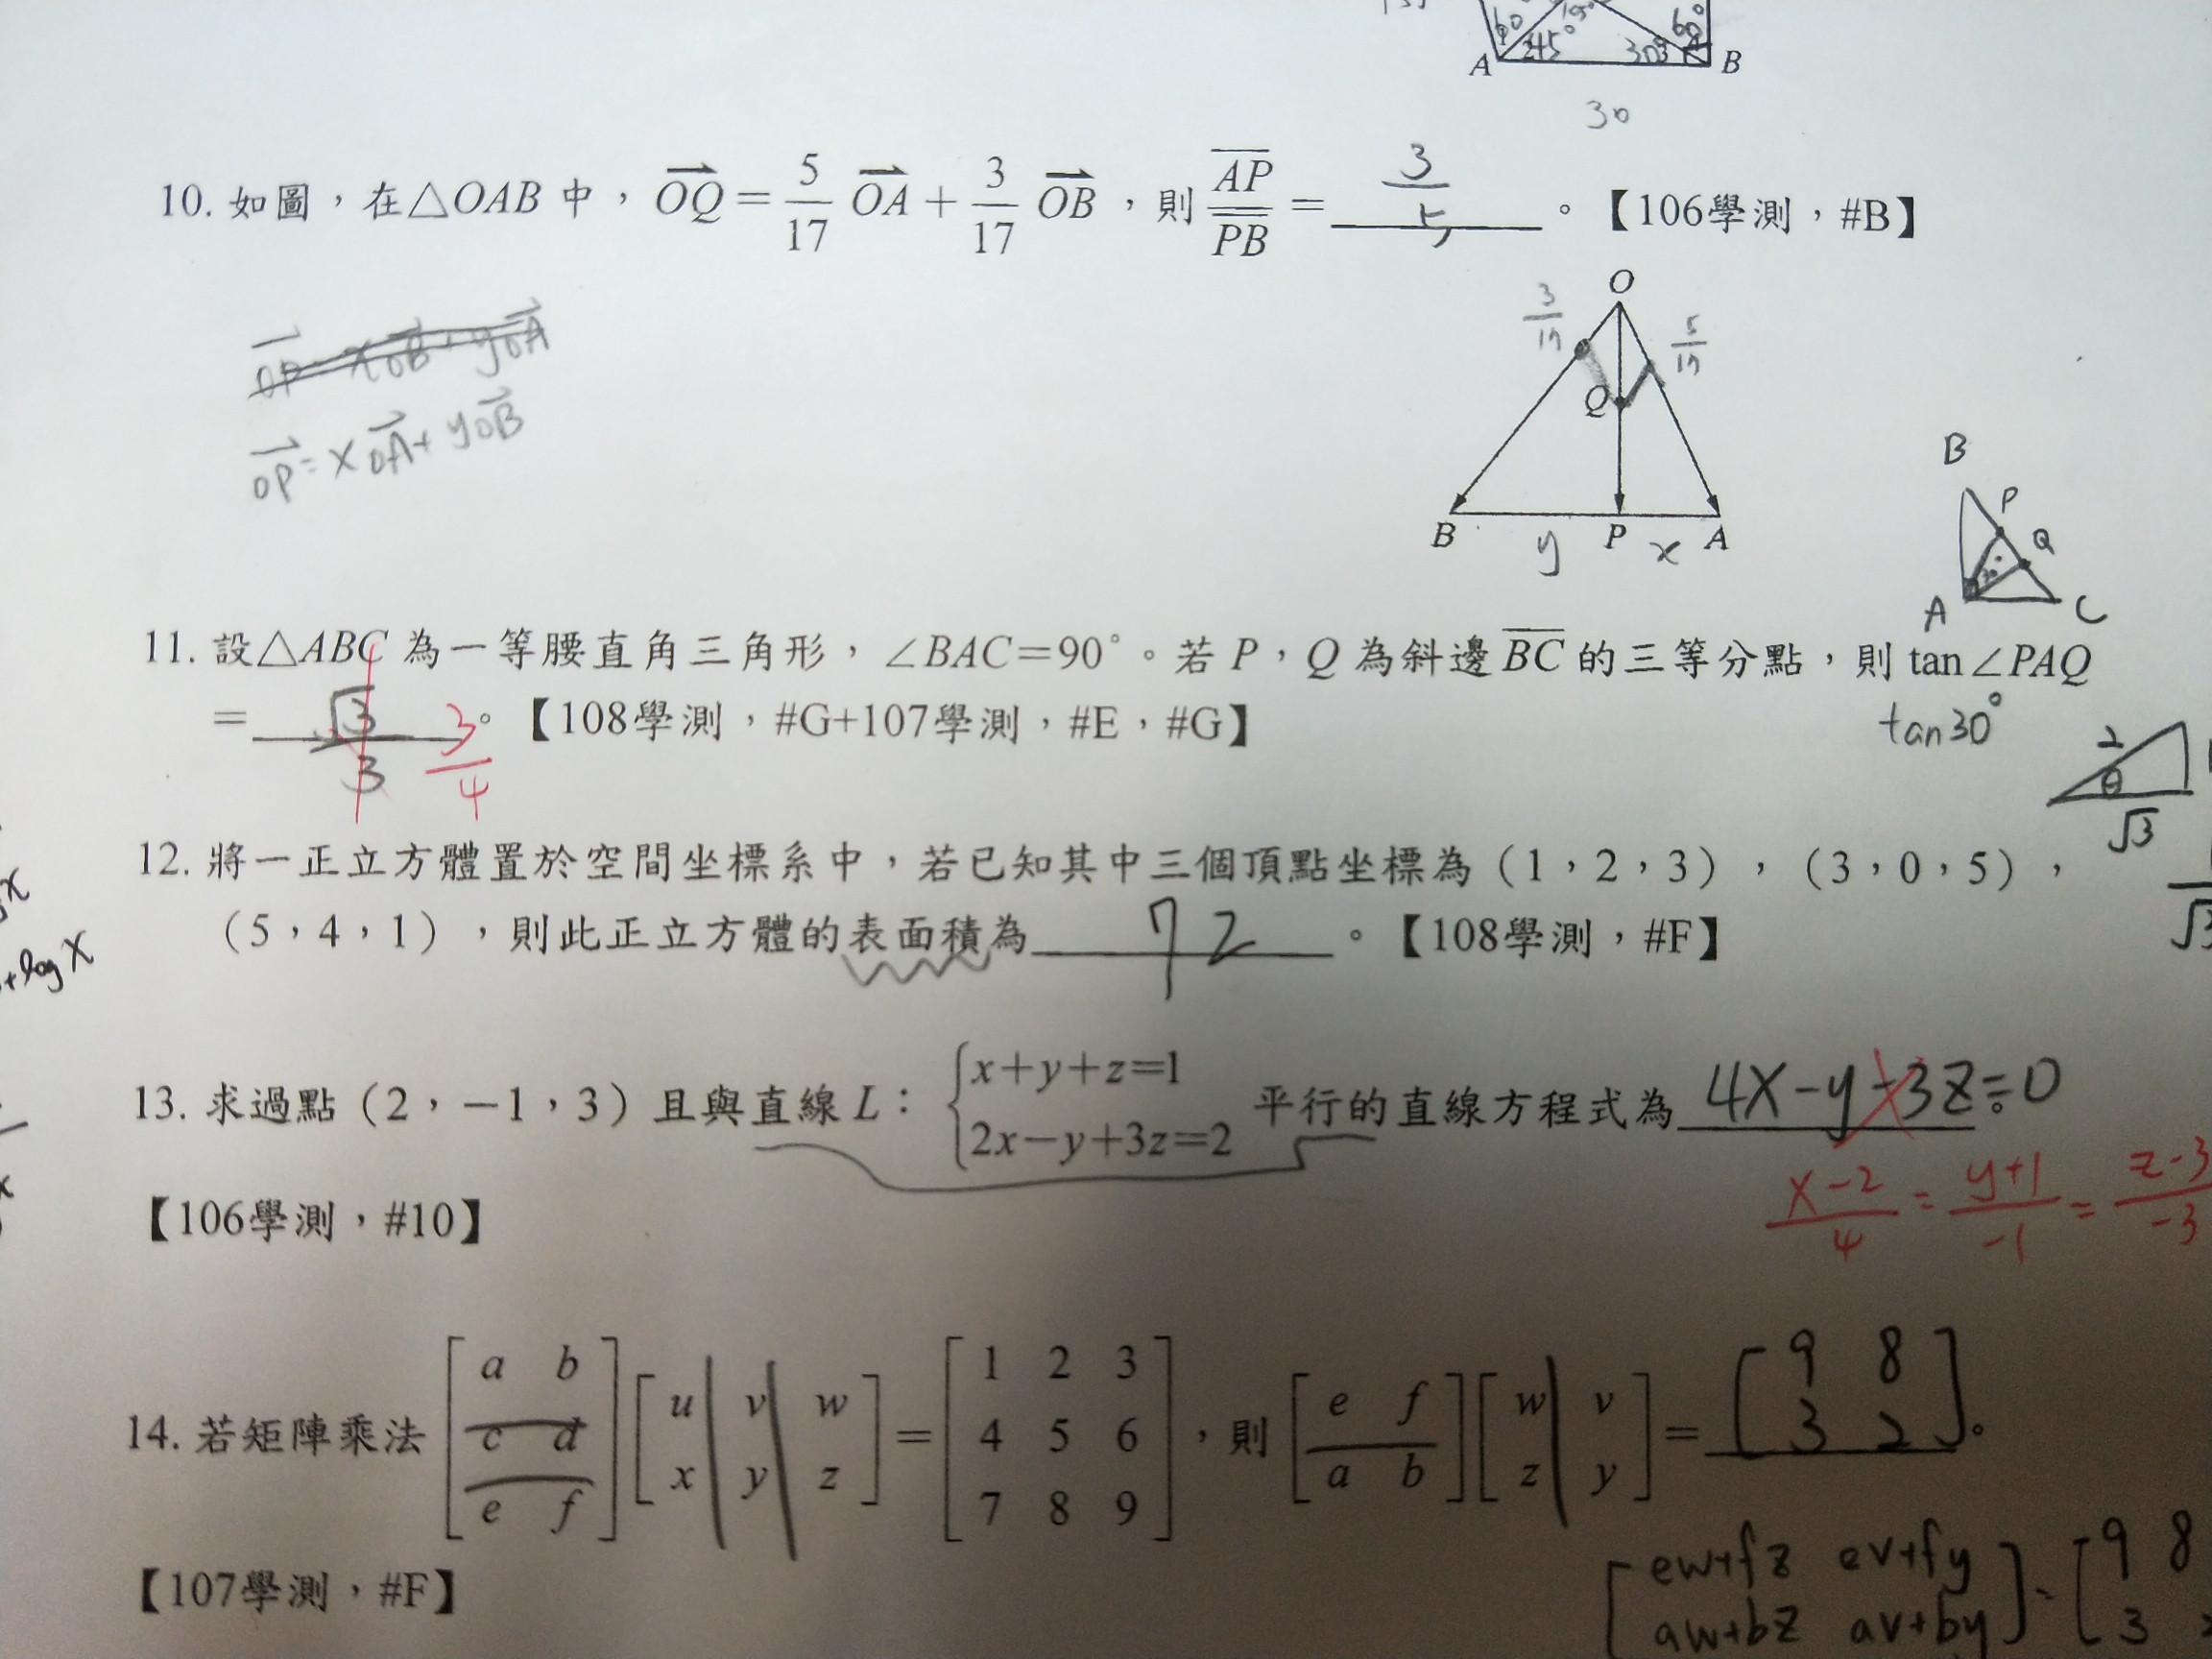 60° 105° 60°
A 45° 30° B
30
10. 如圖，在△OAB中，OQ = 5/17 OA + 3/17 OB，則 AP/PB = 3/5。【106學測，#B】
O
3/17 5/17
OP = xOB + yOA
Q
OP = xOA + yOB
B P A
y x
B
P
Q
A C
11. 設△ABC為一等腰直角三角形，∠BAC=90°。若P，Q為斜邊BC的三等分點，則tan∠PAQ
= √3/3 3/4。【108學測，#G+107學測，#E，#G】
tan30°
2
θ
√3
12. 將一正立方體置於空間坐標系中，若已知其中三個頂點坐標為（1，2，3），（3，0，5），
（5，4，1），則此正立方體的表面積為 72。【108學測，#F】
+log x
13. 求過點（2，−1，3）且與直線L：{x+y+z=1 2x−y+3z=2 平行的直線方程式為 4x-y-3z=0。
(x-2)/4 = (y+1)/-1 = (z-3)/-3
【106學測，#10】
14. 若矩陣乘法 [a b; c d; e f] [u v w; x y z] = [1 2 3; 4 5 6; 7 8 9]，則 [e f; a b] [w v; z y] = [9 8; 3 2]。
【107學測，#F】
[ew+fz ev+fy; aw+bz av+by] = [9 8; 3